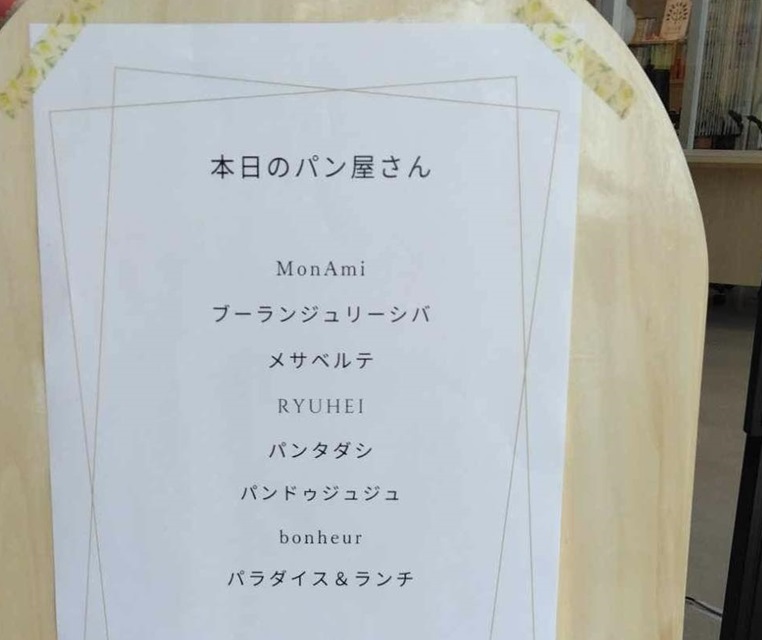 本日のパン屋さん
MonAmi
ブーランジュリーシバ
メサベルテ
RYUHEI
パンタダシ
パンドゥジュジュ
bonheur
パラダイス＆ランチ